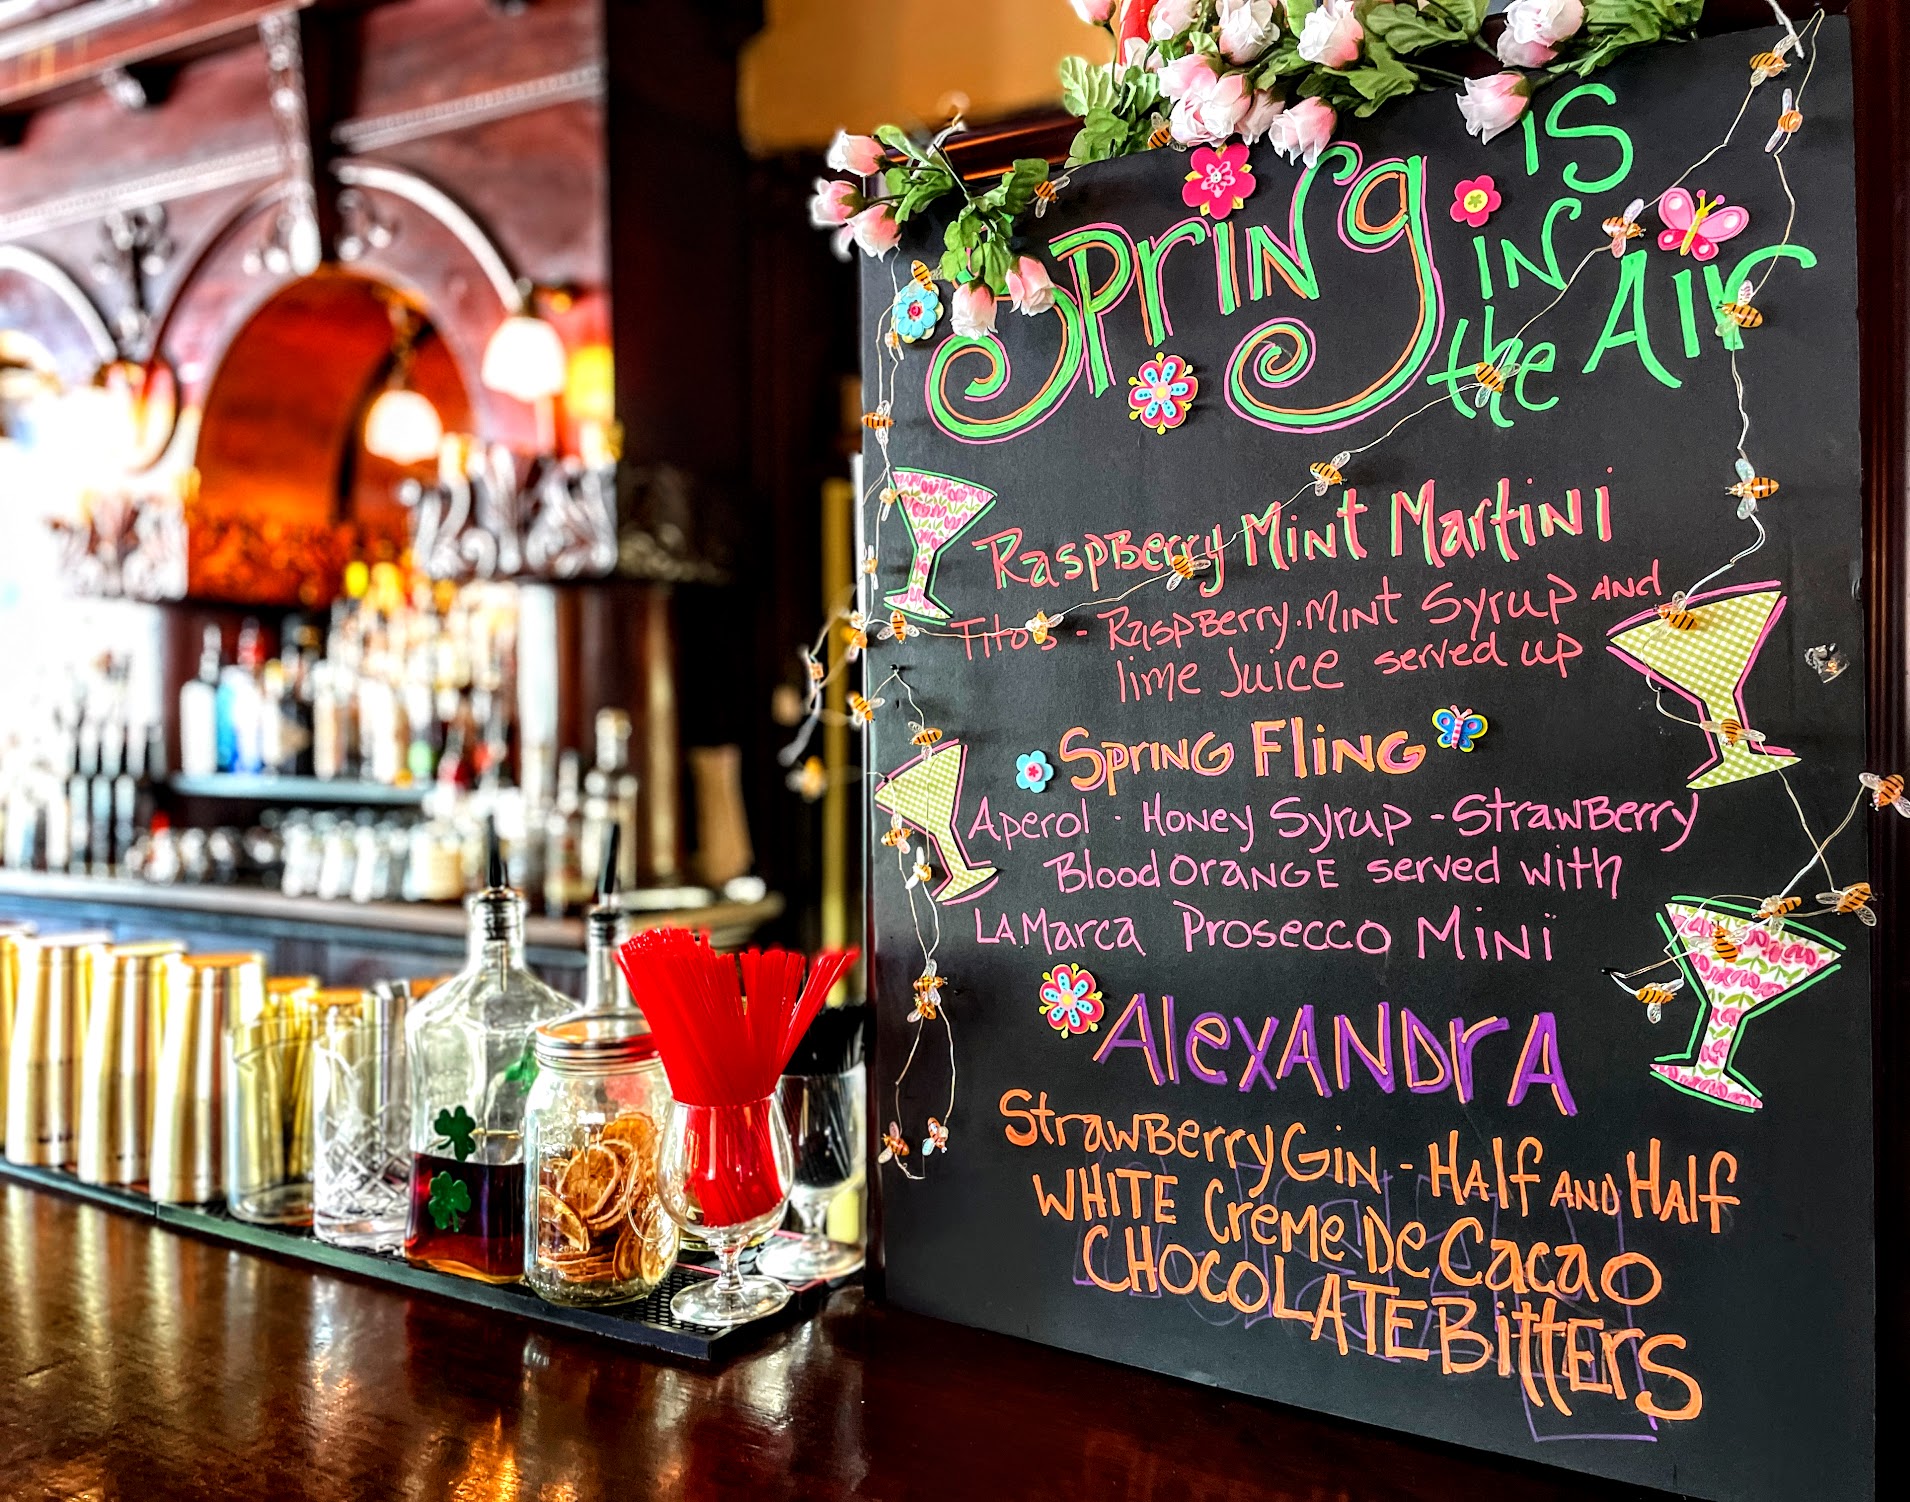 Spring is
in
the Air
Raspberry Mint Martini
Titos - Raspberry. Mint Syrup and
lime Juice served up
Spring Fling
Aperol · Honey Syrup - Strawberry
Blood Orange served with
LA Marca Prosecco Mini
Alexandra
Strawberry Gin - Half and Half
WHITE Creme De Cacao
CHOCOLATE Bitters